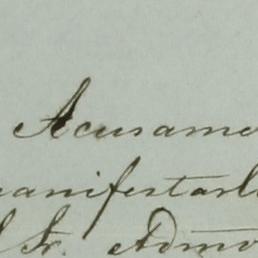 Acusamo
manifestarl
l Sr. Admo